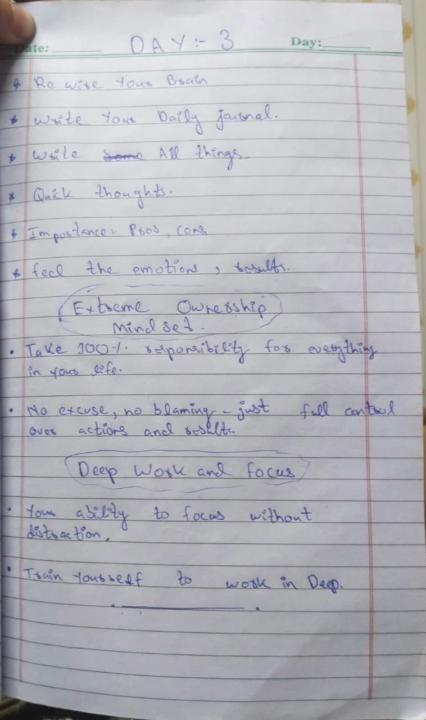 Date:
DAY :- 3
Day:
* Re wire Your Brain
* Write Your Daily jarnal.
* Write some All things.
* Quik thoughts.
* Importance: Pros, cons
* feel the emotions, results.
Extreme Ownership
Mindset.
• Take 100% responsibility for everything
in your life.
• No excuse, no blaming - just full control
over actions and results
Deep Work and focus
• Your ability to focus without
distraction.
• Train Yourself to work in Deep.